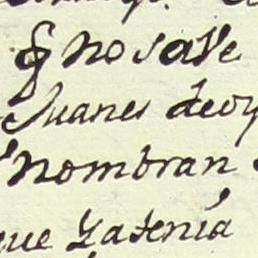 q no save
Juanes deoy
nombran
que ya tenia